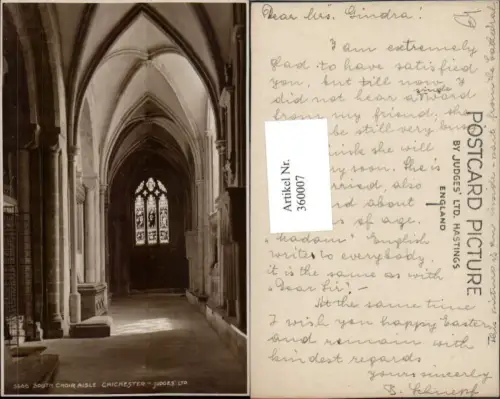 SOUTH CHOIR AISLE CHICHESTER - JUDGES' LTD
Dear Mrs. Gindra!
I am extremely
glad to have satisfied
you, but till now I
did not hear a single word
from my friend, she
be still very busy
she will
soon. She is
also
about
of age.
"Madam" English
write to everybody,
it is the same as with
"Dear Sir"! -
At the same time
I wish you happy Eastern
and remain with
kindest regards
yours sincerely
Artikel Nr.
360007
POSTCARD PICTURE
BY JUDGES' LTD, HASTINGS
ENGLAND